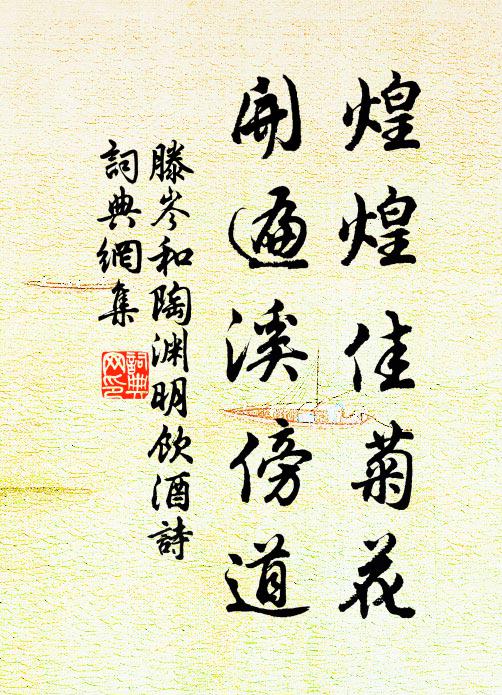 煌煌佳菊花
開遍溪傍道
滕岑和陶渊明飲酒詩
詞典網集
詞典网印